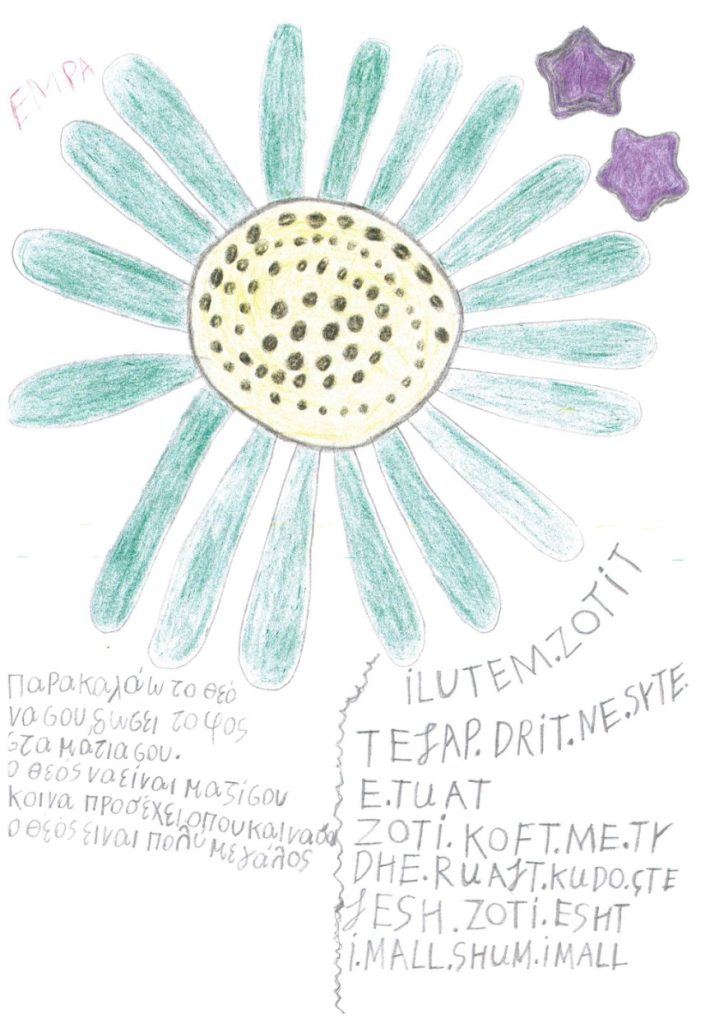 ΕΜΡΑ
Παρακαλάω το θεό
να σου δωσει το φος
στα ματια σου.
ο θεός να είναι μαζί σου
κοινα προσέχει οπου και να σαι
ο θεός ειναι πολύ μεγάλος
iLUTEM.ZOTIT
TEJAP.DRIT.NE.SYTE.
E.TUAT
ZOTi.KOFT.ME.TY
DHE.RUAJT.KUDO.ÇTE
JESH.ZOTi.ESHT
i.MALL.SHUM.iMALL